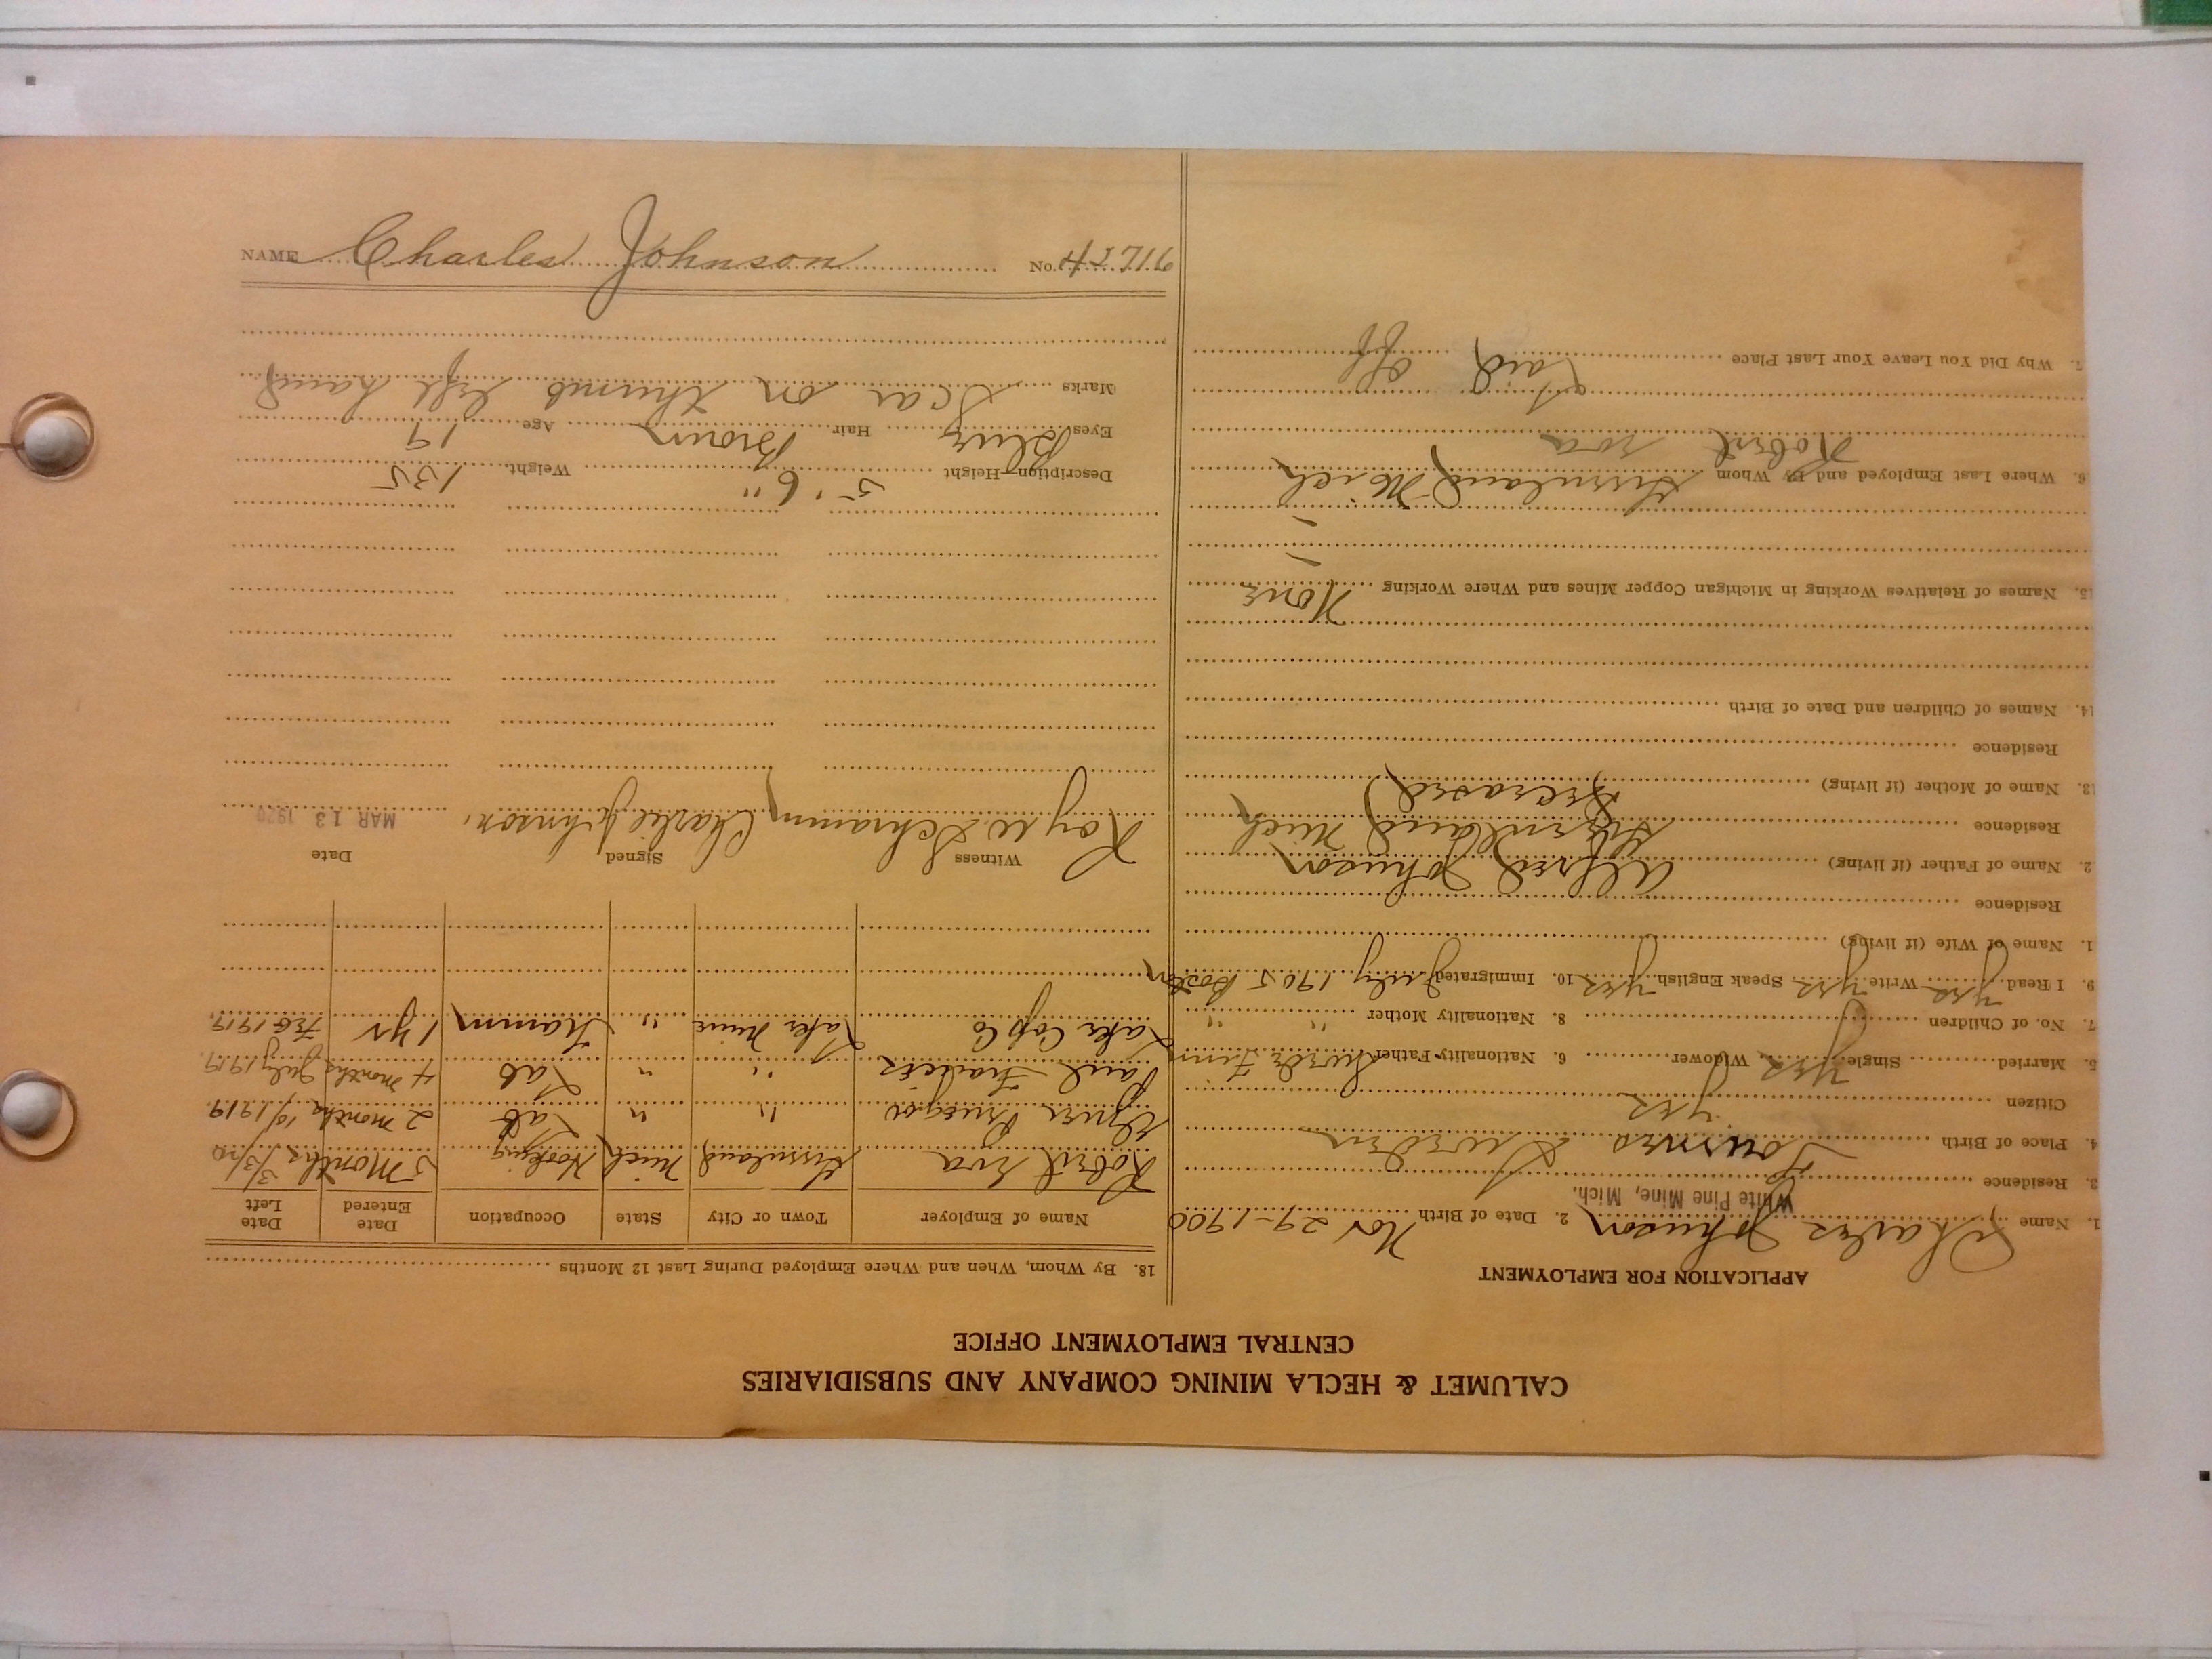 CALUMET & HECLA MINING COMPANY AND SUBSIDIARIES
CENTRAL EMPLOYMENT OFFICE
APPLICATION FOR EMPLOYMENT
1. Name Charles Johnson 2. Date of Birth Nov 29-1900
White Pine Mine, Mich.
3. Residence
4. Place of Birth Sweden
Citizen yes
5. Married Single yes Widower 6. Nationality Father Swede Finn
7. No. of Children 8. Nationality Mother " "
9. I Read yes Write yes Speak English yes 10. Immigrated July 1905 Boston
1. Name of Wife (if living)
Residence
2. Name of Father (if living) Alfred Johnson
Residence Greenland Mich
13. Name of Mother (if living) Deceased
Residence
14. Names of Children and Date of Birth
15. Names of Relatives Working in Michigan Copper Mines and Where Working None
6. Where Last Employed and By Whom Greenland Mich
Robert
7. Why Did You Leave Your Last Place Laid off
18. By Whom, When and Where Employed During Last 12 Months
Name of Employer Town or City State Occupation Date Entered Date Left
Robert Greenland Mich Hooking 5 Months 3/3/20
" " Lab 2 months 10/1919
Paul " " Lab 4 months July 1919
Lake Cop Co Lake Mine " Tramm 1 yr Feb 1919
Witness Signed Date
Roy W. Schramm Charlie Johnson. MAR 13 1920
Description—Height 5' 6" Weight 135
Eyes Blue Hair Brown Age 19
Marks Scar on thumb left hand
NAME Charles Johnson No. 42716